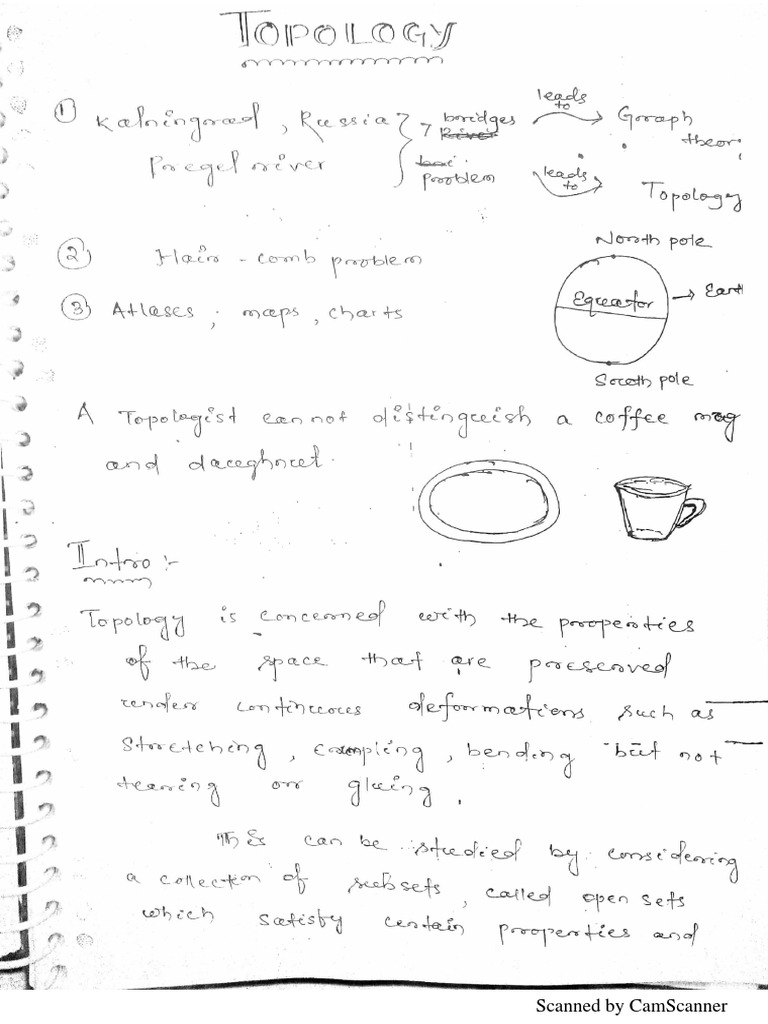 TOPOLOGY
① Kalningrad, Russia } 7 bridges leads to → Graph
Pregel river problem leads to → Topology
North pole
② Hair - comb problem
③ Atlases, maps, charts
Equator → Earth
South pole
A Topologist cannot distinguish a coffee mug
and doughnut.
Intro :-
Topology is concerned with the properties
of the space that are preserved
under continuous deformations such as
stretching, crumpling, bending but not
tearing or gluing.
This can be studied by considering
a collection of subsets, called open sets
which satisfy certain properties and
Scanned by CamScanner